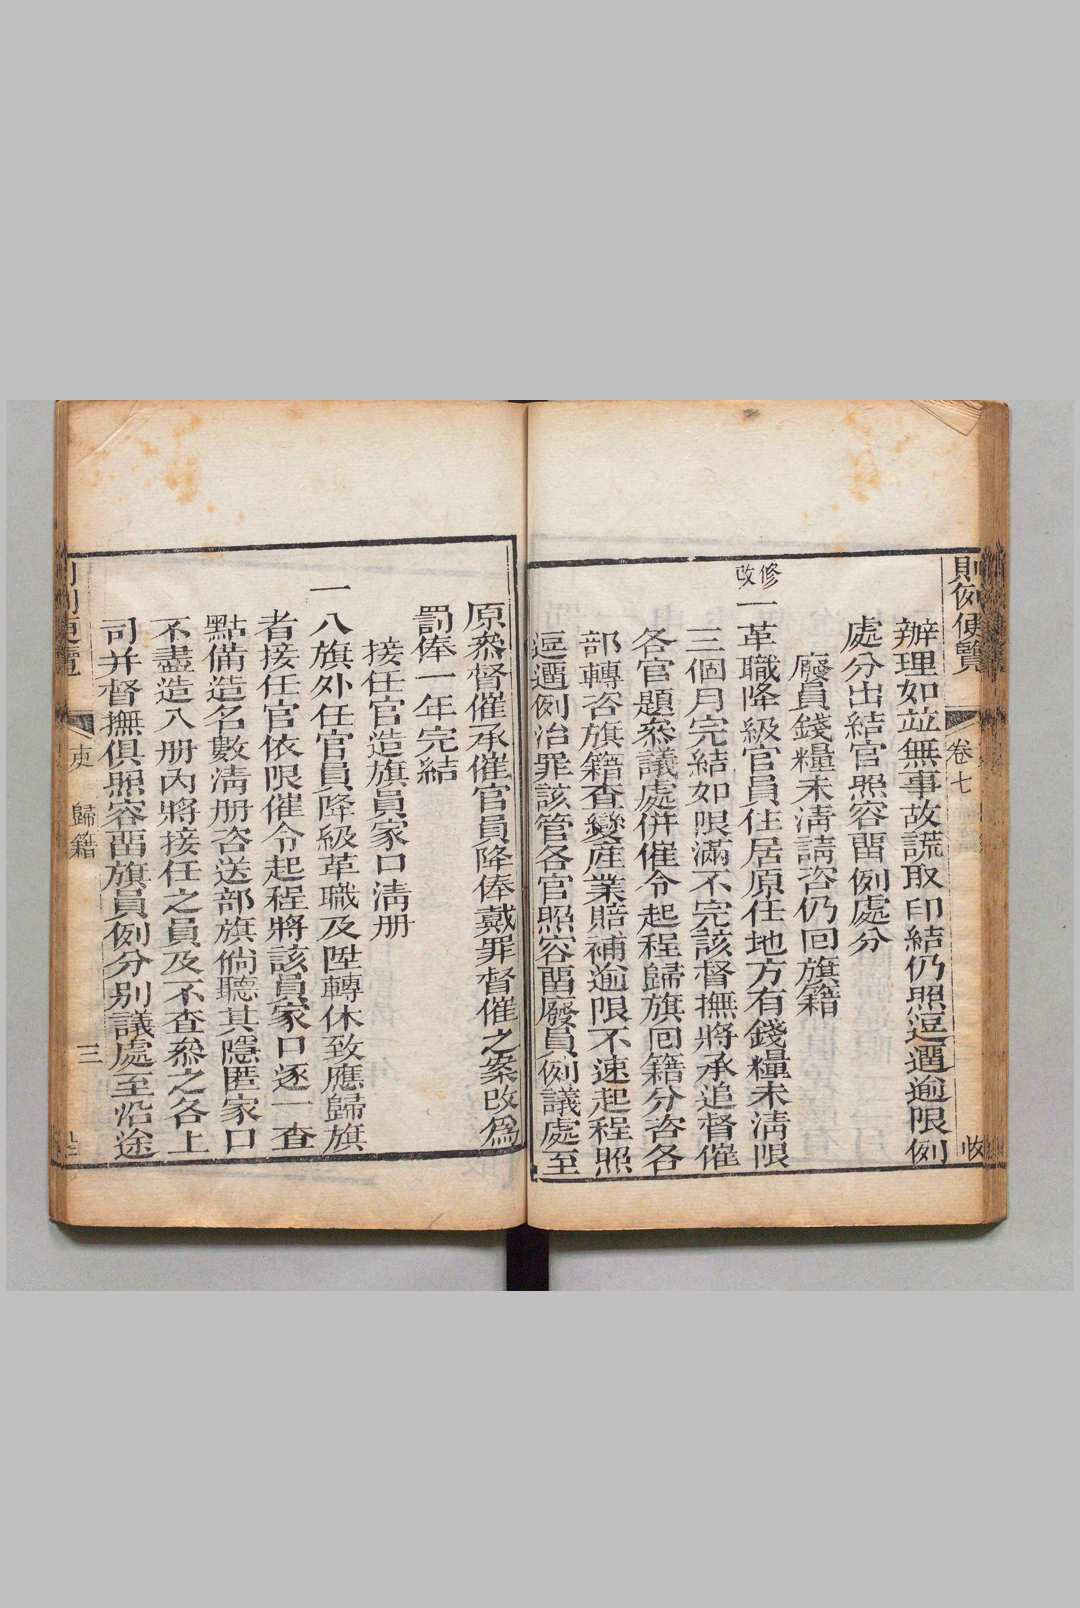 則例便覽 卷七
辦理如並無事故謊取印結仍照逗遛逾限例
處分出結官照容畱例處分
廢員錢糧未清請咨仍回旗籍
修改
一革職降級官員住居原任地方有錢糧未清限
三個月完結如限滿不完該督撫將承追督催
各官題叅議處併催令起程歸旗回籍分咨各
部轉咨旗籍查變産業賠補逾限不速起程照
逗遛例治罪該管各官照容畱廢員例議處至
原叅督催承催官員降俸戴罪督催之案改爲
罰俸一年完結
接任官造旗員家口清册
一八旗外任官員降級革職及陞轉休致應歸旗
者接任官依限催令起程將該員家口逐一查
點備造名數清册咨送部旗倘聽其隱匿家口
不盡造入册內將接任之員及不查叅之各上
司并督撫俱照容畱旗員例分别議處至沿途
則例便覽 吏 歸籍 三